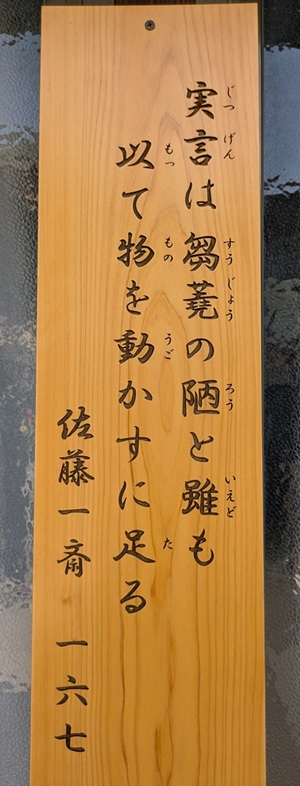 実言は芻蕘の陋と雖も
じつげん すうじょう ろう いえど
以て物を動かすに足る
もっ もの うご た
佐藤一斎 一六七